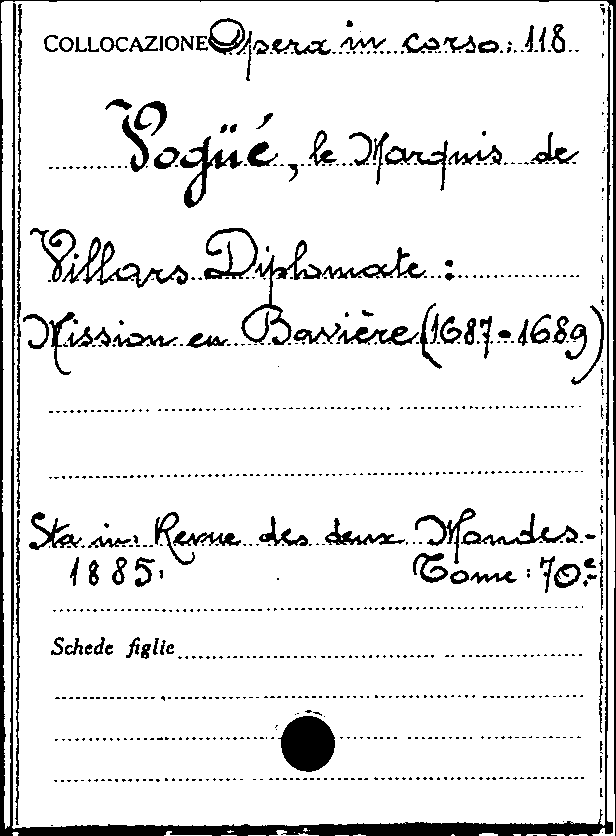 COLLOCAZIONE Opera in corso: 118
Vogüé, le Marquis de
Villars Diplomate :
Mission en Bavière (1687-1689)
Sta in: Revue des deux Mondes-
1885. Tome: 70e-
Schede figlie